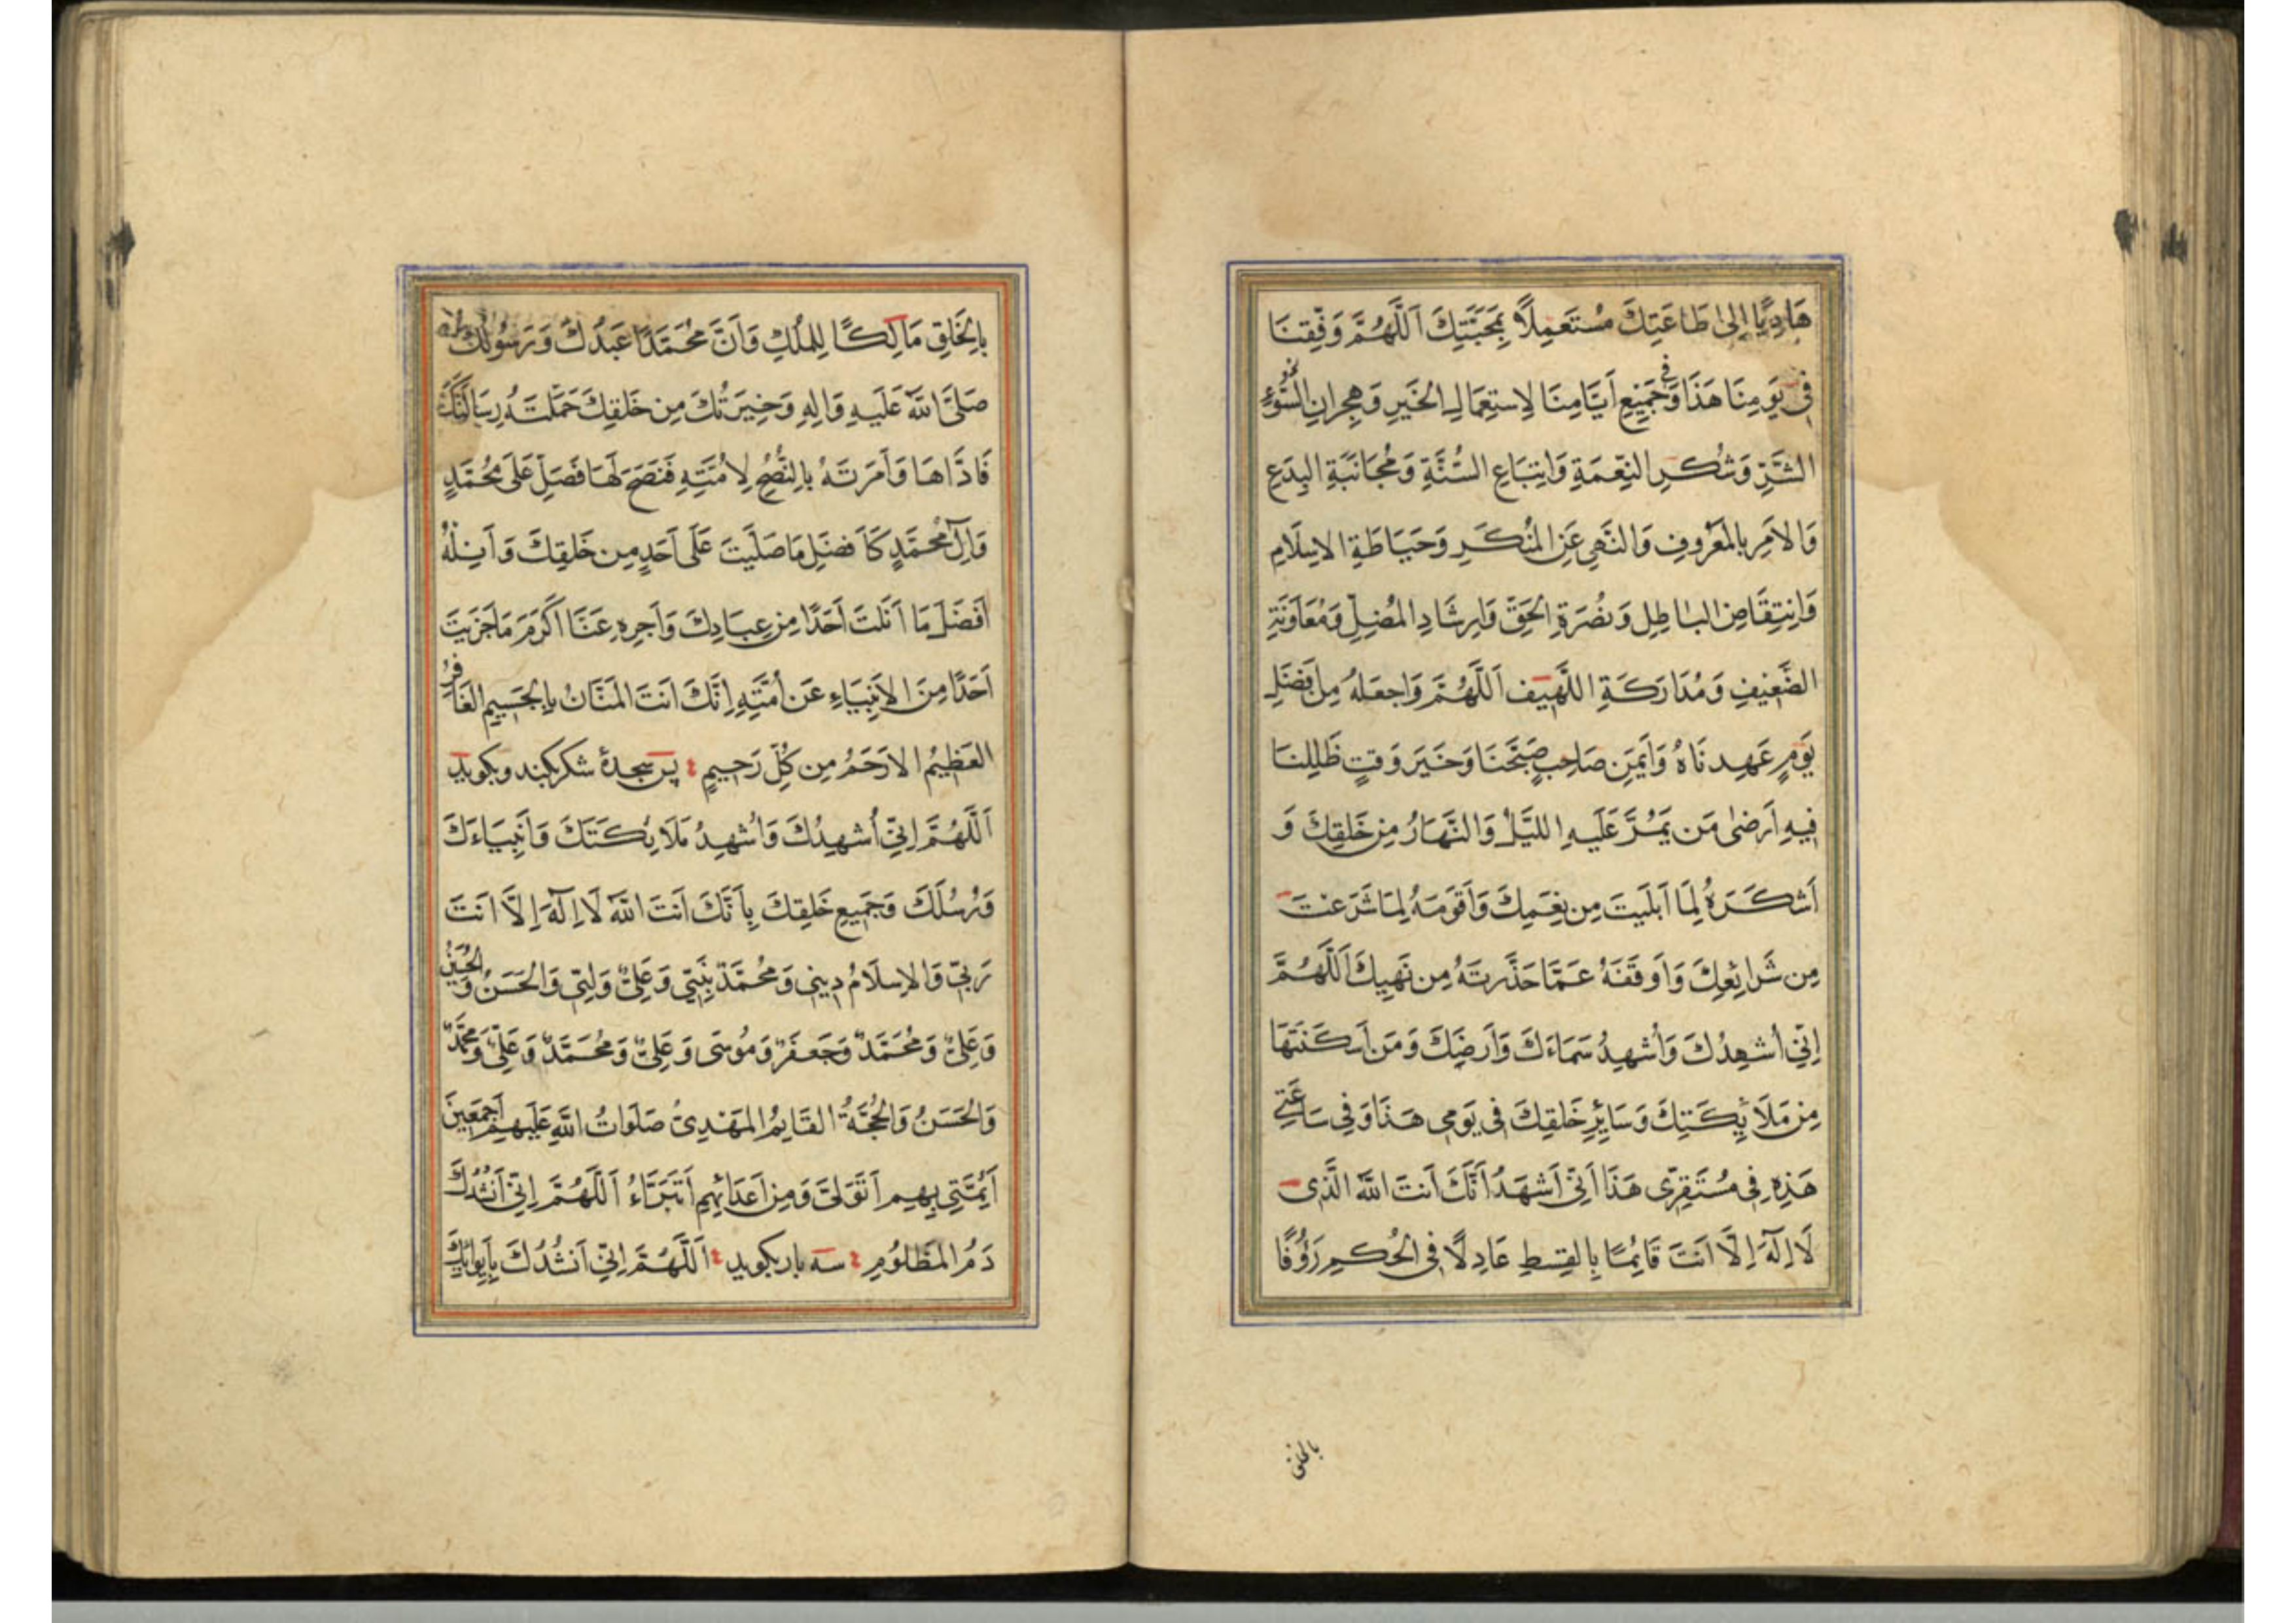 هَادِيًا إِلىٰ طَاعَتِكَ مُسْتَعْمِلًا بِمَحَبَّتِكَ اَللَّهُمَّ وَفِّقنَا
فِي يَوْمِنَا هَذَا وَ فِي جَمِيْعِ اَيَّامِنَا لِاِستِعمَالِ الخَيرِ وَهِجرانِ السُّوءِ
الشَّرِّ وَشُكرِ النِعّمَةِ وَاتِبَاعِ السُّنَّةِ وَمُجَانَبَةِ البِدَعِ
وَالاَمرِ بِالمَعْرُوفِ وَالنَّهىِ عَنِ المُنْكَرِ وَحِيَاطَةِ الاِسلَامِ
وَانتِقَاصِ البَاطِلِ وَنُصْرَةِ الحَقِّ وَاِرشَادِ المُضِلِّ وَمُعَاوَنَةِ
الضَّعِيْفِ وَمُدَارَكَةِ اللَّهِيف اَللَّهُمَّ وَاجعَلهُ مِن اَفضَلِ
يَومٍ عَهِدنَاهُ وَاَيمَنِ صَاحِبٍ صَحِبنَا وَخَيَر وَقتٍ ظَلِلنَا
فِيهِ اَرضىٰ مَن يَمُرَّ عَلَيهِ اللَيَّلُ وَالنَّهَارُ مِن خَلقِكَ وَ
اَشكَرَهُ لِمَا اَبلَيتَ مِن نِعَمِكَ وَاَقوَمَهُ لِمَا شَرَعْتَ
مِن شَرَائِعِكَ وَاَوقَفَهُ عَمَّا حَذَّرتَهُ مِن نَهيِكَ اَللَّهُمَّ
اِنِّي اُشهِدُكَ وَاُشهِدُ سَمَاءَكَ وَاَرضِكَ وَمَن اَسكَنتَهَا
مِن مَلَائِكَتِكَ وَسَايِرِ خَلقِكَ فِى يَومِى هَذَا وَفِى سَاعَتِي
هَذِهِ فِى مُستَقَرِّى هَذَا اَنِّى اَشهَدُ اَنَّكَ اَنتَ اللّٰهُ الَّذِى
لَا اِلٰهَ اِلَّا اَنتَ قَائِمًا بِالقِسطِ عَادِلًا فِى الحُكمِ رَؤُفًا
بالخلق
بِالخَلقِ مَالِكًا لِلمُلكِ وَاَنَّ مُحَمَّدًا عَبدُكَ وَرَسُولُكَ
صَلَّى اللّٰهُ عَلَيهِ وَالِهِ وَخِيَرَتُكَ مِن خَلقِكَ حَمَّلتَهُ رِسَالَتَكَ
فَاَدَّاهَا وَاَمَرتَهُ بِالنُّصحِ لِاُمَّتِهِ فَنَصَحَ لَهَا فَصَلِّ عَلَى مُحَمَّدٍ
وَالِ مُحَمَّدٍ كَاَفضَلِ مَا صَلَّيتَ عَلَى اَحَدٍ مِن خَلقِكَ وَاَنِلهُ
اَفضَلَ مَا اَنَلتَ اَحَدًا مِن عِبَادِكَ وَاَجزِهِ عَنَّا اَكرَمَ مَا جَزَيتَ
اَحَدًا مِنَ الاَنبِيَاءِ عَن اُمَّتِهِ اِنَّكَ اَنتَ المَنَّانُ بِالجَسِيمِ الغَافِرُ
العَظِيُم الاَرحَمُ مِن كُلِّ رَحِيمٍ پس سجدهٔ شکر بکند و بکوید
اَللَّهُمَّ اِنِّي اُشهِدُكَ وَاُشهِدُ مَلَائِكَتَكَ وَاَنبِيَاءَكَ
وَرُسُلَكَ وَجَمِيعِ خَلقِكَ بِاَنَّكَ اَنتَ اللّٰهُ لَا اِلٰهَ اِلَّا اَنتَ
رَبِّي وَالاِسلَامُ دِينِي وَمُحَمَّدٌ نَبِيِّي وَعَلِيٌّ وَلِيِّي وَالحَسَنُ وَالحُسَيْنُ
وَعَلِيٌّ وَمُحَمَّدٌ وَجَعفَرٌ وَمُوسَى وَعَلِيٌّ وَمُحَمَّدٌ وَعَلِيٌّ وَمُحَمَّدٌ
وَالحَسَنُ وَالحُجَّةُ القَايِمُ المَهدِىُّ صَلَوَاتُ اللّٰهِ عَلَيهِم اَجمَعِينَ
اَئِمَّتِي بِهِم اَتَوَلَّى وَمِن اَعدَائِهِم اَتَبَرَّاءُ اَللَّهُمَّ اِنِّي اَنشُدُكَ
دَمَ المَظلُومِ سه بار بکوید اَللَّهُمَّ اِنِّي اَنشُدُكَ بِاِيوَائِكَ